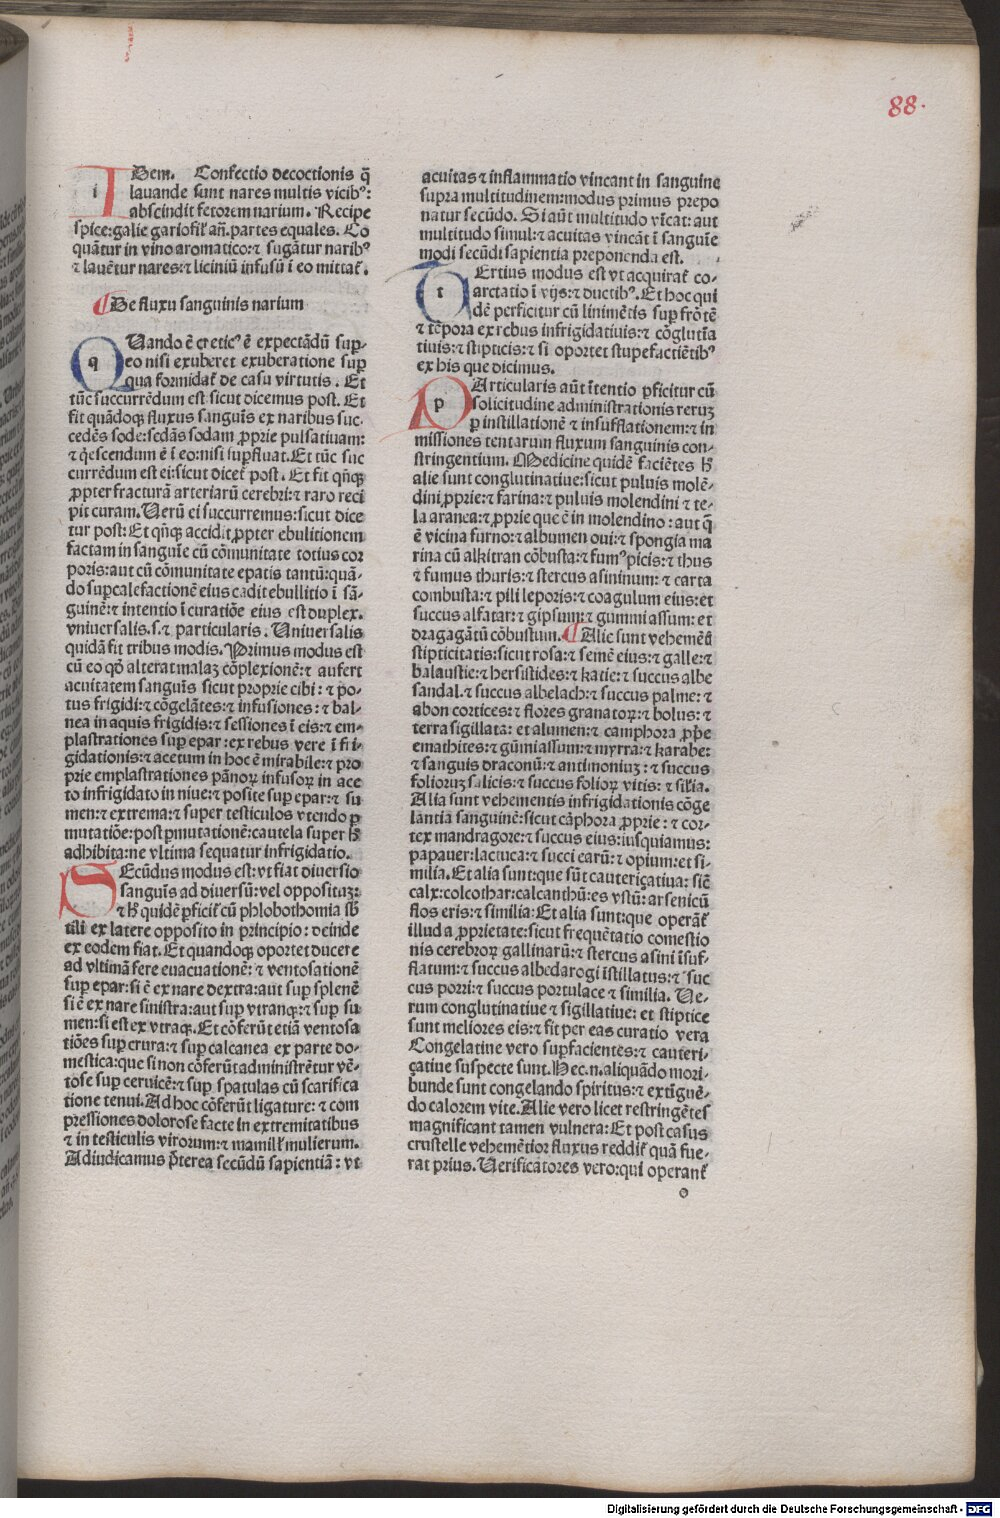 88.
IDem. Confectio decoctionis q̄
lauande sunt nares multis vicibꝰ:
abscindit fetorem narium. Recipe
spice: galie gariofiƚ añ. partes equales. Co
quātur in vino aromatico: ⁊ sugātur naribꝰ
⁊ lauētur nares: ⁊ liciniū infusū ī eo mittat᷑.
¶ De fluxu sanguinis narium
QUando ē creticꝰ ē expectādū suꝑ-
eo nisi exuberet exuberatione suꝑ
qua formidat᷑ de casu virtutis. Et
tūc succurrēdum est sicut dicemus post. Et
fit quādoqꝫ fluxus sanguīs ex naribus suc-
cedēs sode: sedās sodam ꝓprie pulsatiuam:
⁊ q̇escendum ē ī eo: nisi suꝑfluat. Et tūc suc
currēdum est ei: sicut dicet᷑ post. Et fit qn̄qꝫ
ꝓpter fracturā arteriarū cerebri: ⁊ raro reci
pit curam. Verū ei succurremus: sicut dice
tur post: Et qn̄qꝫ accidit ꝓpter ebulitionem
factam in sanguīe cū cōmunitate totius cor
poris: aut cū cōmunitate epatis tantū: quā-
do suꝑcalefactionē eius cadit ebullitio ī sā-
guinē: ⁊ intentio ī curatiōe eius est duplex.
vniuersalis. s. ⁊ particularis. Uniuersalis
quidā fit tribus modis. Primus modus est
cū eo qď alterat malaꝫ cōplexionē: ⁊ aufert
acuitatem sanguīs sicut proprie cibi: ⁊ po-
tus frigidi: ⁊ cōgelātes: ⁊ infusiones: ⁊ bal-
nea in aquis frigidis: ⁊ sessiones ī eis: ⁊ em-
plastrationes suꝑ epar: ex rebus vere ī fri-
gidationis: ⁊ acetum in hoc ē mirabile: ⁊ pro
prie emplastrationes pānoꝝ infusoꝝ in ace
to infrigidato in niue: ⁊ posite suꝑ epar: ⁊ su
men: ⁊ extrema: ⁊ super testiculos vtendo ꝑ
mutatiōe: post ꝑmutationē: cautela super hͦ
adhibita: ne vltima sequatur infrigidatio.
SEcūdus modus est: vt fiat diuersio
sanguīs ad diuersū: vel oppositaꝫ:
⁊ hͦ quidē ꝑficit᷑ cū phlobothomia sb̄
tili ex latere opposito in principio: deinde
ex eodem fiat. Et quandoqꝫ oportet ducere
ad vltimā fere euacuationē: ⁊ ventosationē
suꝑ epar: si ē ex nare dextra: aut suꝑ splenē
si ē ex nare sinistra: aut suꝑ vtranqꝫ: ⁊ suꝑ su
men: si est ex vtraqꝫ. Et cōferūt etiā ventosa
tiōes suꝑ crura: ⁊ suꝑ calcanea ex parte do-
mestica: que si non cōferūt administrētur vē-
tose suꝑ ceruicē: ⁊ suꝑ spatulas cū scarifica
tione tenui. Ad hoc cōferūt ligature: ⁊ com
pressiones dolorose facte in extremitatibus
⁊ in testiculis virorum: ⁊ mamilƚ mulierum.
Adiudicamus p̄terea secūdū sapientiā: vt
acuitas ⁊ inflammatio vincant in sanguine
supra multitudinem: modus primus prepo
natur secūdo. Si aūt multitudo vīcat: aut
multitudo simul: ⁊ acuitas vincāt ī sanguīe
modi secūdi sapientia preponenda est.
TErtius modus est vt acquirat᷑ co-
arctatio ī vijs: ⁊ ductibꝰ. Et hoc qui
dē perficitur cū linimētis suꝑ frōtē
⁊ tēpora ex rebus infrigidatiuis: ⁊ cōglutīa
tiuis: ⁊ stipticis: ⁊ si oportet stupefactiētibꝰ
ex his que dicimus.
PArticularis aūt ītentio ꝑficitur cū
solicitudine administrationis reruꝫ
ꝑ instillationē ⁊ insufflationem: ⁊ in
missiones tentarum fluxum sanguinis con-
stringentium. Medicine quidē faciētes hͦ
alie sunt conglutinatiue: sicut puluis molē-
dini ꝓprie: ⁊ farina: ⁊ puluis molendini ⁊ te-
la aranea: ⁊ ꝓprie que ē in molendino: aut q̄
ē vicina furno: ⁊ albumen oui: ⁊ spongia ma
rina cū alkitran cōbusta: ⁊ fumꝰ picis: ⁊ thus
⁊ fumus thuris: ⁊ stercus asininum: ⁊ carta
combusta: ⁊ pili leporis: ⁊ coagulum eius: et
succus alfatar: ⁊ gipsum: ⁊ gummi assum: et
dragagātū cōbustum. ¶ Alie sunt vehemētis
stipticitatis: sicut rosa: ⁊ semē eius: ⁊ galle: ⁊
balaustie: ⁊ hersistides: ⁊ katie: ⁊ succus albe
sandal. ⁊ succus albelach: ⁊ succus palme: ⁊
abon cortices: ⁊ flores granatoꝝ: ⁊ bolus: ⁊
terra sigillata: et alumen: ⁊ camphora ꝓp̄e
emathites: ⁊ gūmi assum: ⁊ myrra: ⁊ karabe:
⁊ sanguis draconū: ⁊ antimoniuꝫ: ⁊ succus
folioruꝫ salicis: ⁊ succus folioꝝ vitis: ⁊ silīa.
Alia sunt vehementis infrigidationis cōge
lantia sanguinē: sicut cāphora ꝓprie: ⁊ cor-
tex mandragore: ⁊ succus eius: iusquiamus:
papauer: lactuca: ⁊ succi earū: ⁊ opium: et si-
milia. Et alia sunt: que sūt cauteriçatiua: sic̄
calx: colcothar: calcanthū: es vstū: arsenicū
flos eris: ⁊ similia: Et alia sunt: que operāt᷑
illud a ꝓprietate: sicut frequētatio comestio
nis cerebroꝝ gallinarū: ⁊ stercus asini īsuf-
flatum: ⁊ succus albedarogi īstillatus: ⁊ suc
cus porri: ⁊ succus portulace ⁊ similia. Ve-
rum conglutinatiue ⁊ sigillatiue: et stiptice
sunt meliores eis: ⁊ fit per eas curatio vera
Congelatiue vero suꝑfacientes: ⁊ cauteri-
çatiue suspecte sunt. Hec. n. aliquādo mori-
bunde sunt congelando spiritus: ⁊ extīguē-
do calorem vite. Alie vero licet restringētes
magnificant tamen vulnera: Et post casus
crustelle vehemētior fluxus reddit᷑ quā fue-
rat prius. Verificatores vero: qui operant᷑
o
Digitalisierung gefördert durch die Deutsche Forschungsgemeinschaft - DFG